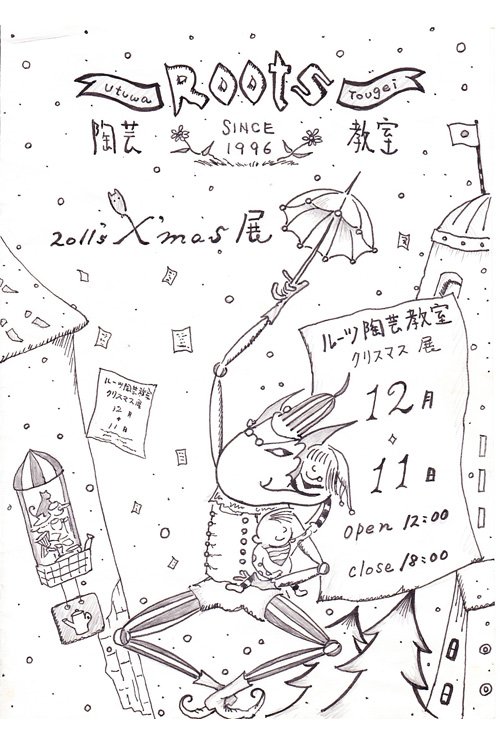 Utuwa Roots Tougei
陶芸 SINCE 1996 教室
2011's X'mas 展
ルーツ陶芸教室
クリスマス 展
12月
11日
open 12:00
close 18:00
ルーツ陶芸教室
クリスマス展
12月
11日